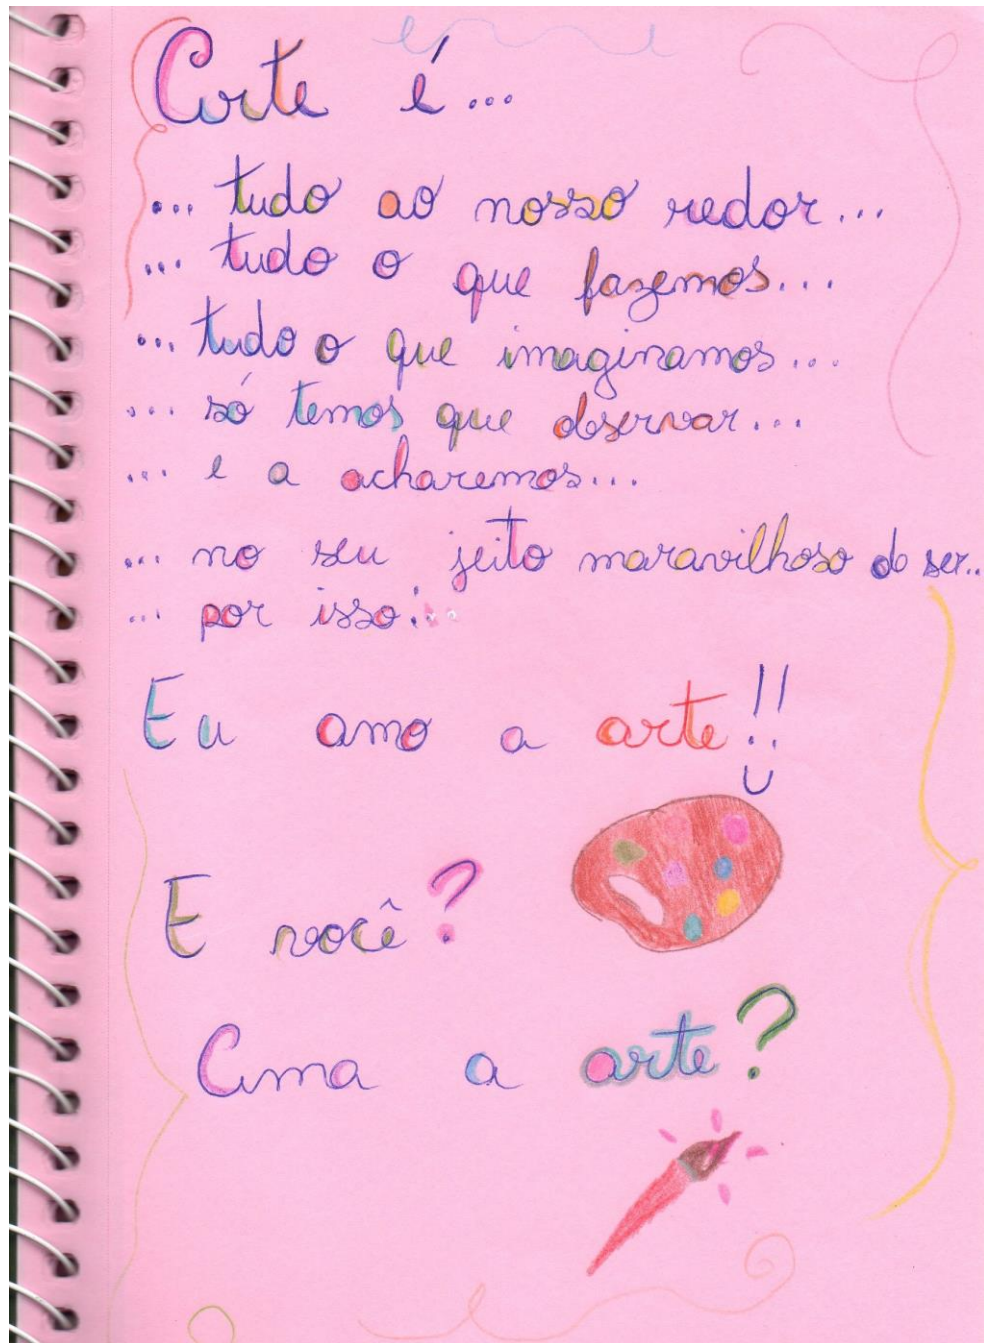 Arte é...
... tudo ao nosso redor...
... tudo o que fazemos...
... tudo o que imaginamos...
... só temos que observar...
... e a acharemos...
... no seu jeito maravilhoso de ser..
... por isso...
Eu amo a arte!!
E você?
Ama a arte?